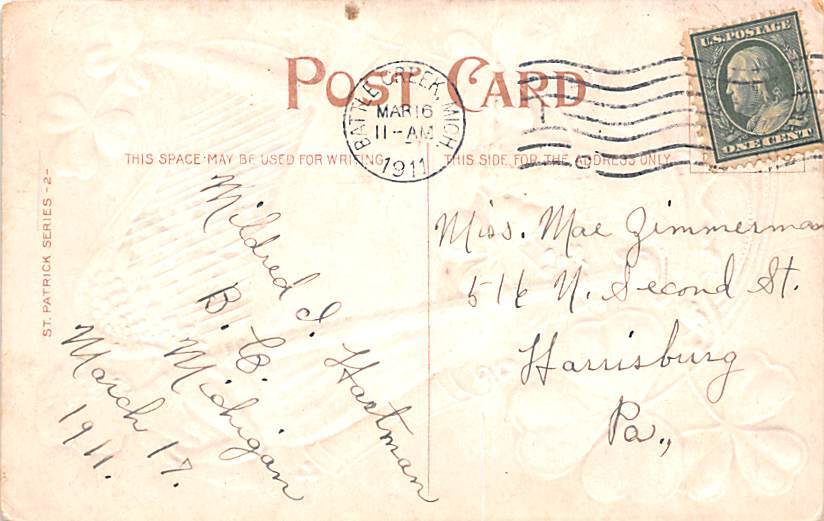 POST CARD
BATTLE CREEK, MICH.
MAR 16
11-AM
1911
U.S. POSTAGE
ONE CENT
THIS SPACE MAY BE USED FOR WRITING
THIS SIDE FOR THE ADDRESS ONLY
ST. PATRICK SERIES -2-
Mildred I. Hartman
B. C.
Michigan
March 17.
1911.
Miss. Mae Zimmerman
516 N. Second St.
Harrisburg
Pa.,